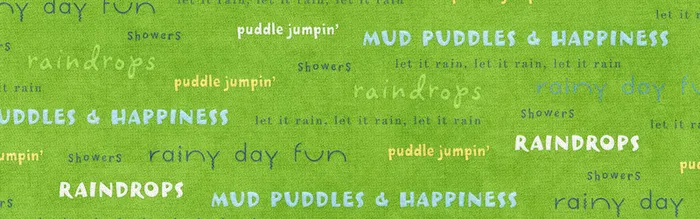 ny day fun
let it rain, let it rain, let it rain
puddle jumpin'
let it
showers
MUD PUDDLES & HAPPINESS
raindrops
showers
let it rain, let it rain, let it rain
puddle jumpin'
rain
raindrops
rainy day fu
UDDLES & HAPPINESS
let it rain, let it rain, let it rain
showers
let it r
RAINDROPS
umpin'
showers
rainy day fun
puddle jumpin'
pu
showers
RAINDROPS
MUD PUDDLES & HAPPINESS
rainy day